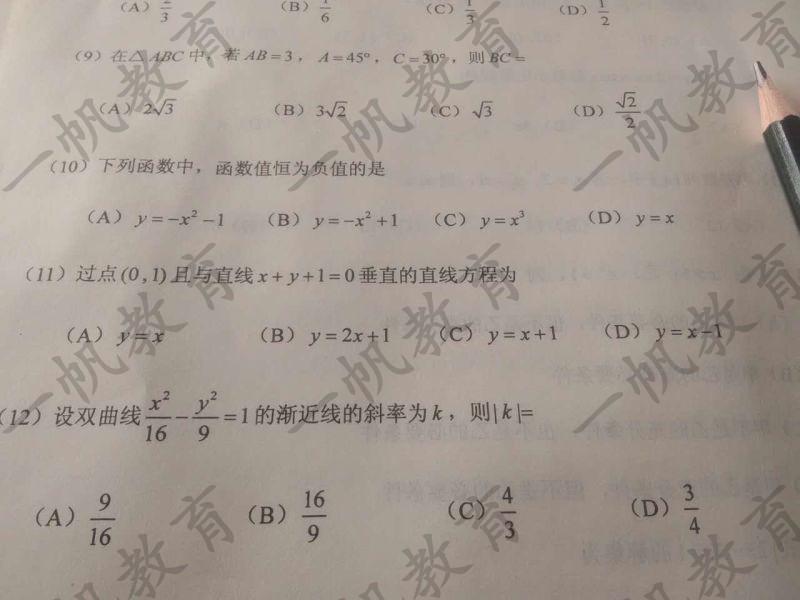 (A) 2/3 (B) 1/6 (C) 1/3 (D) 1/2
(9) 在△ABC 中，若 AB=3，A=45°，C=30°，则 BC=
(A) 2√3 (B) 3√2 (C) √3 (D) √2/2
(10) 下列函数中，函数值恒为负值的是
(A) y=-x²-1 (B) y=-x²+1 (C) y=x³ (D) y=x
(11) 过点(0,1)且与直线 x+y+1=0 垂直的直线方程为
(A) y=x (B) y=2x+1 (C) y=x+1 (D) y=x-1
(12) 设双曲线 x²/16 - y²/9 =1 的渐近线的斜率为 k，则|k|=
(A) 9/16 (B) 16/9 (C) 4/3 (D) 3/4
一帆教育
一帆教育
一帆教育
一帆教育
一帆教育
一帆教育